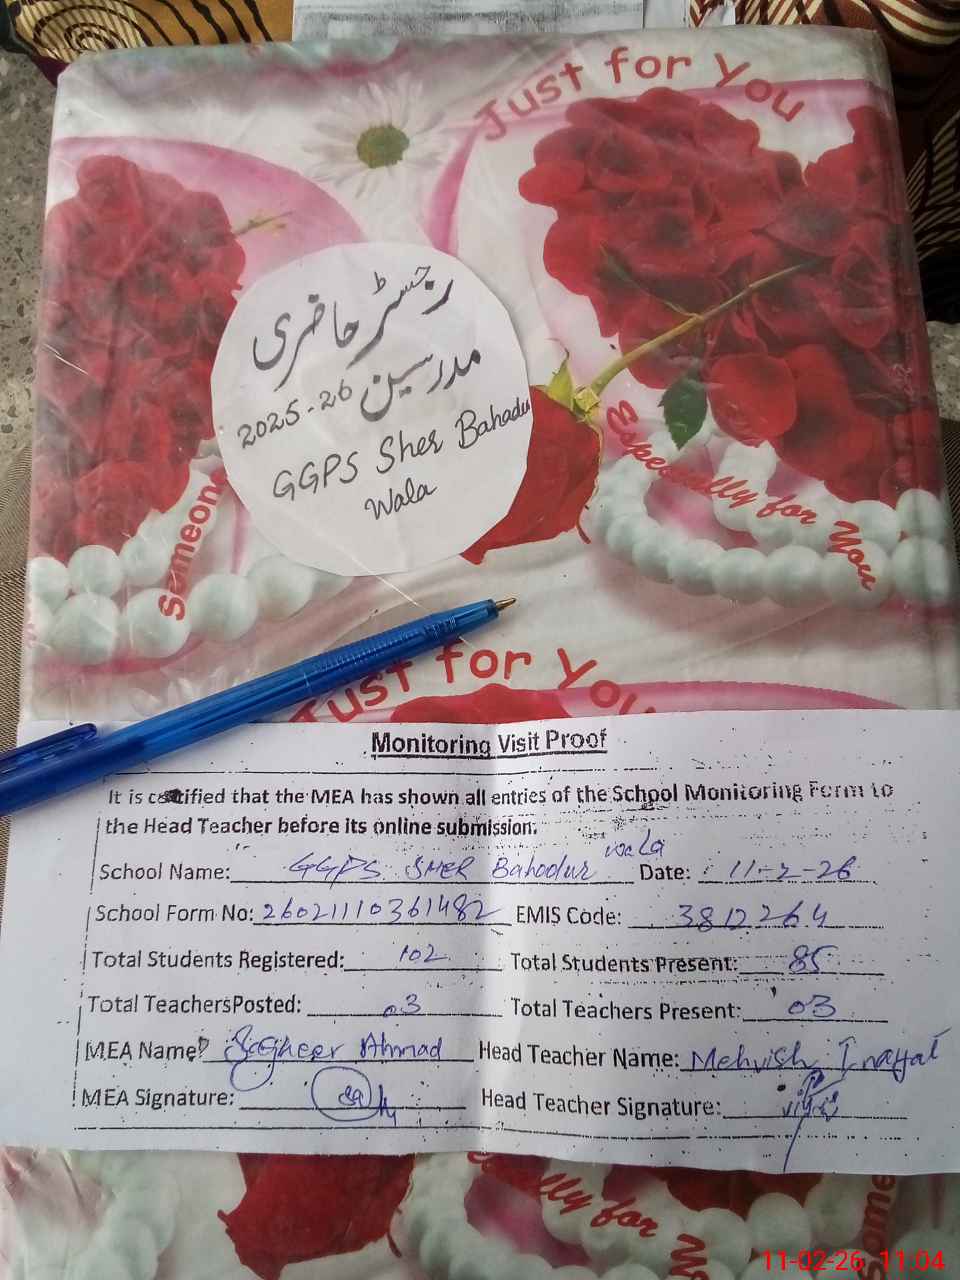 Just for You
رجسٹر حاضری
مدرسین 2025-26
GGPS Sher Bahadur
Wala
Someone
Especially for You
Just for You
Monitoring Visit Proof
It is certified that the MEA has shown all entries of the School Monitoring Form to
the Head Teacher before its online submission.
School Name: GGPS SHER Bahadur wala Date: 11-2-26
School Form No: 26021110361482 EMIS Code: 3812264
Total Students Registered: 102 Total Students Present: 85
Total TeachersPosted: 03 Total Teachers Present: 03
MEA Name: Sagheer Ahmad Head Teacher Name: Mehvish Inayat
MEA Signature: Head Teacher Signature:
ally for
Some
11-02-26 11:04